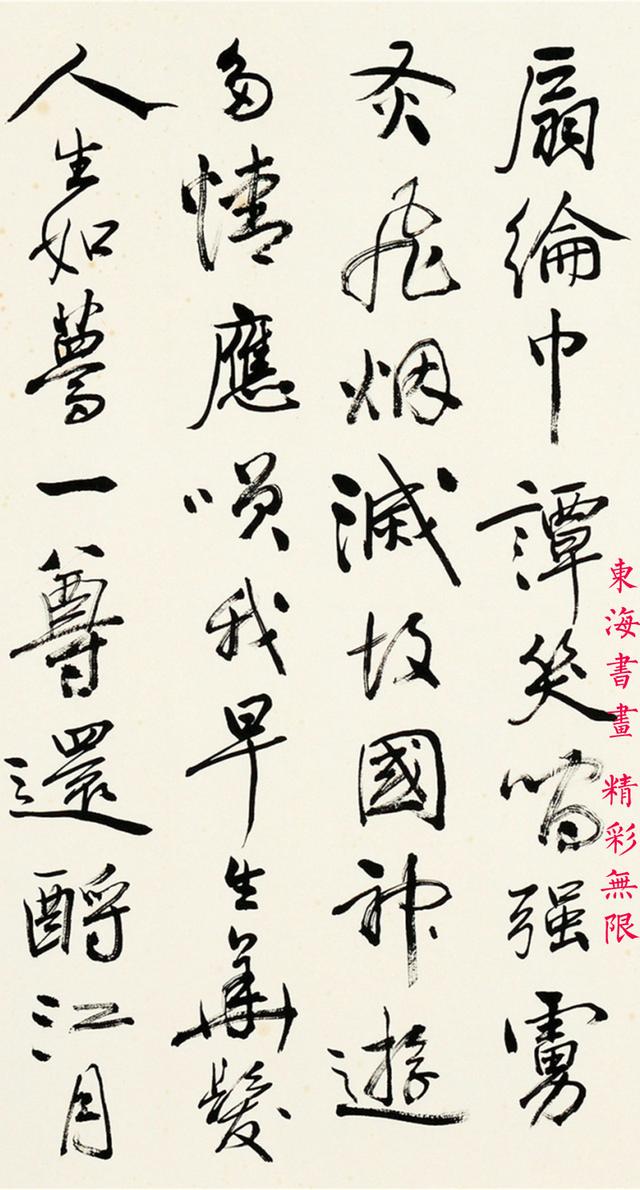 扇綸巾譚笑間强虜
灰飛烟滅故國神遊
多情應我早生華髮
人生如夢一尊還酹江月
東海書畫 精彩無限